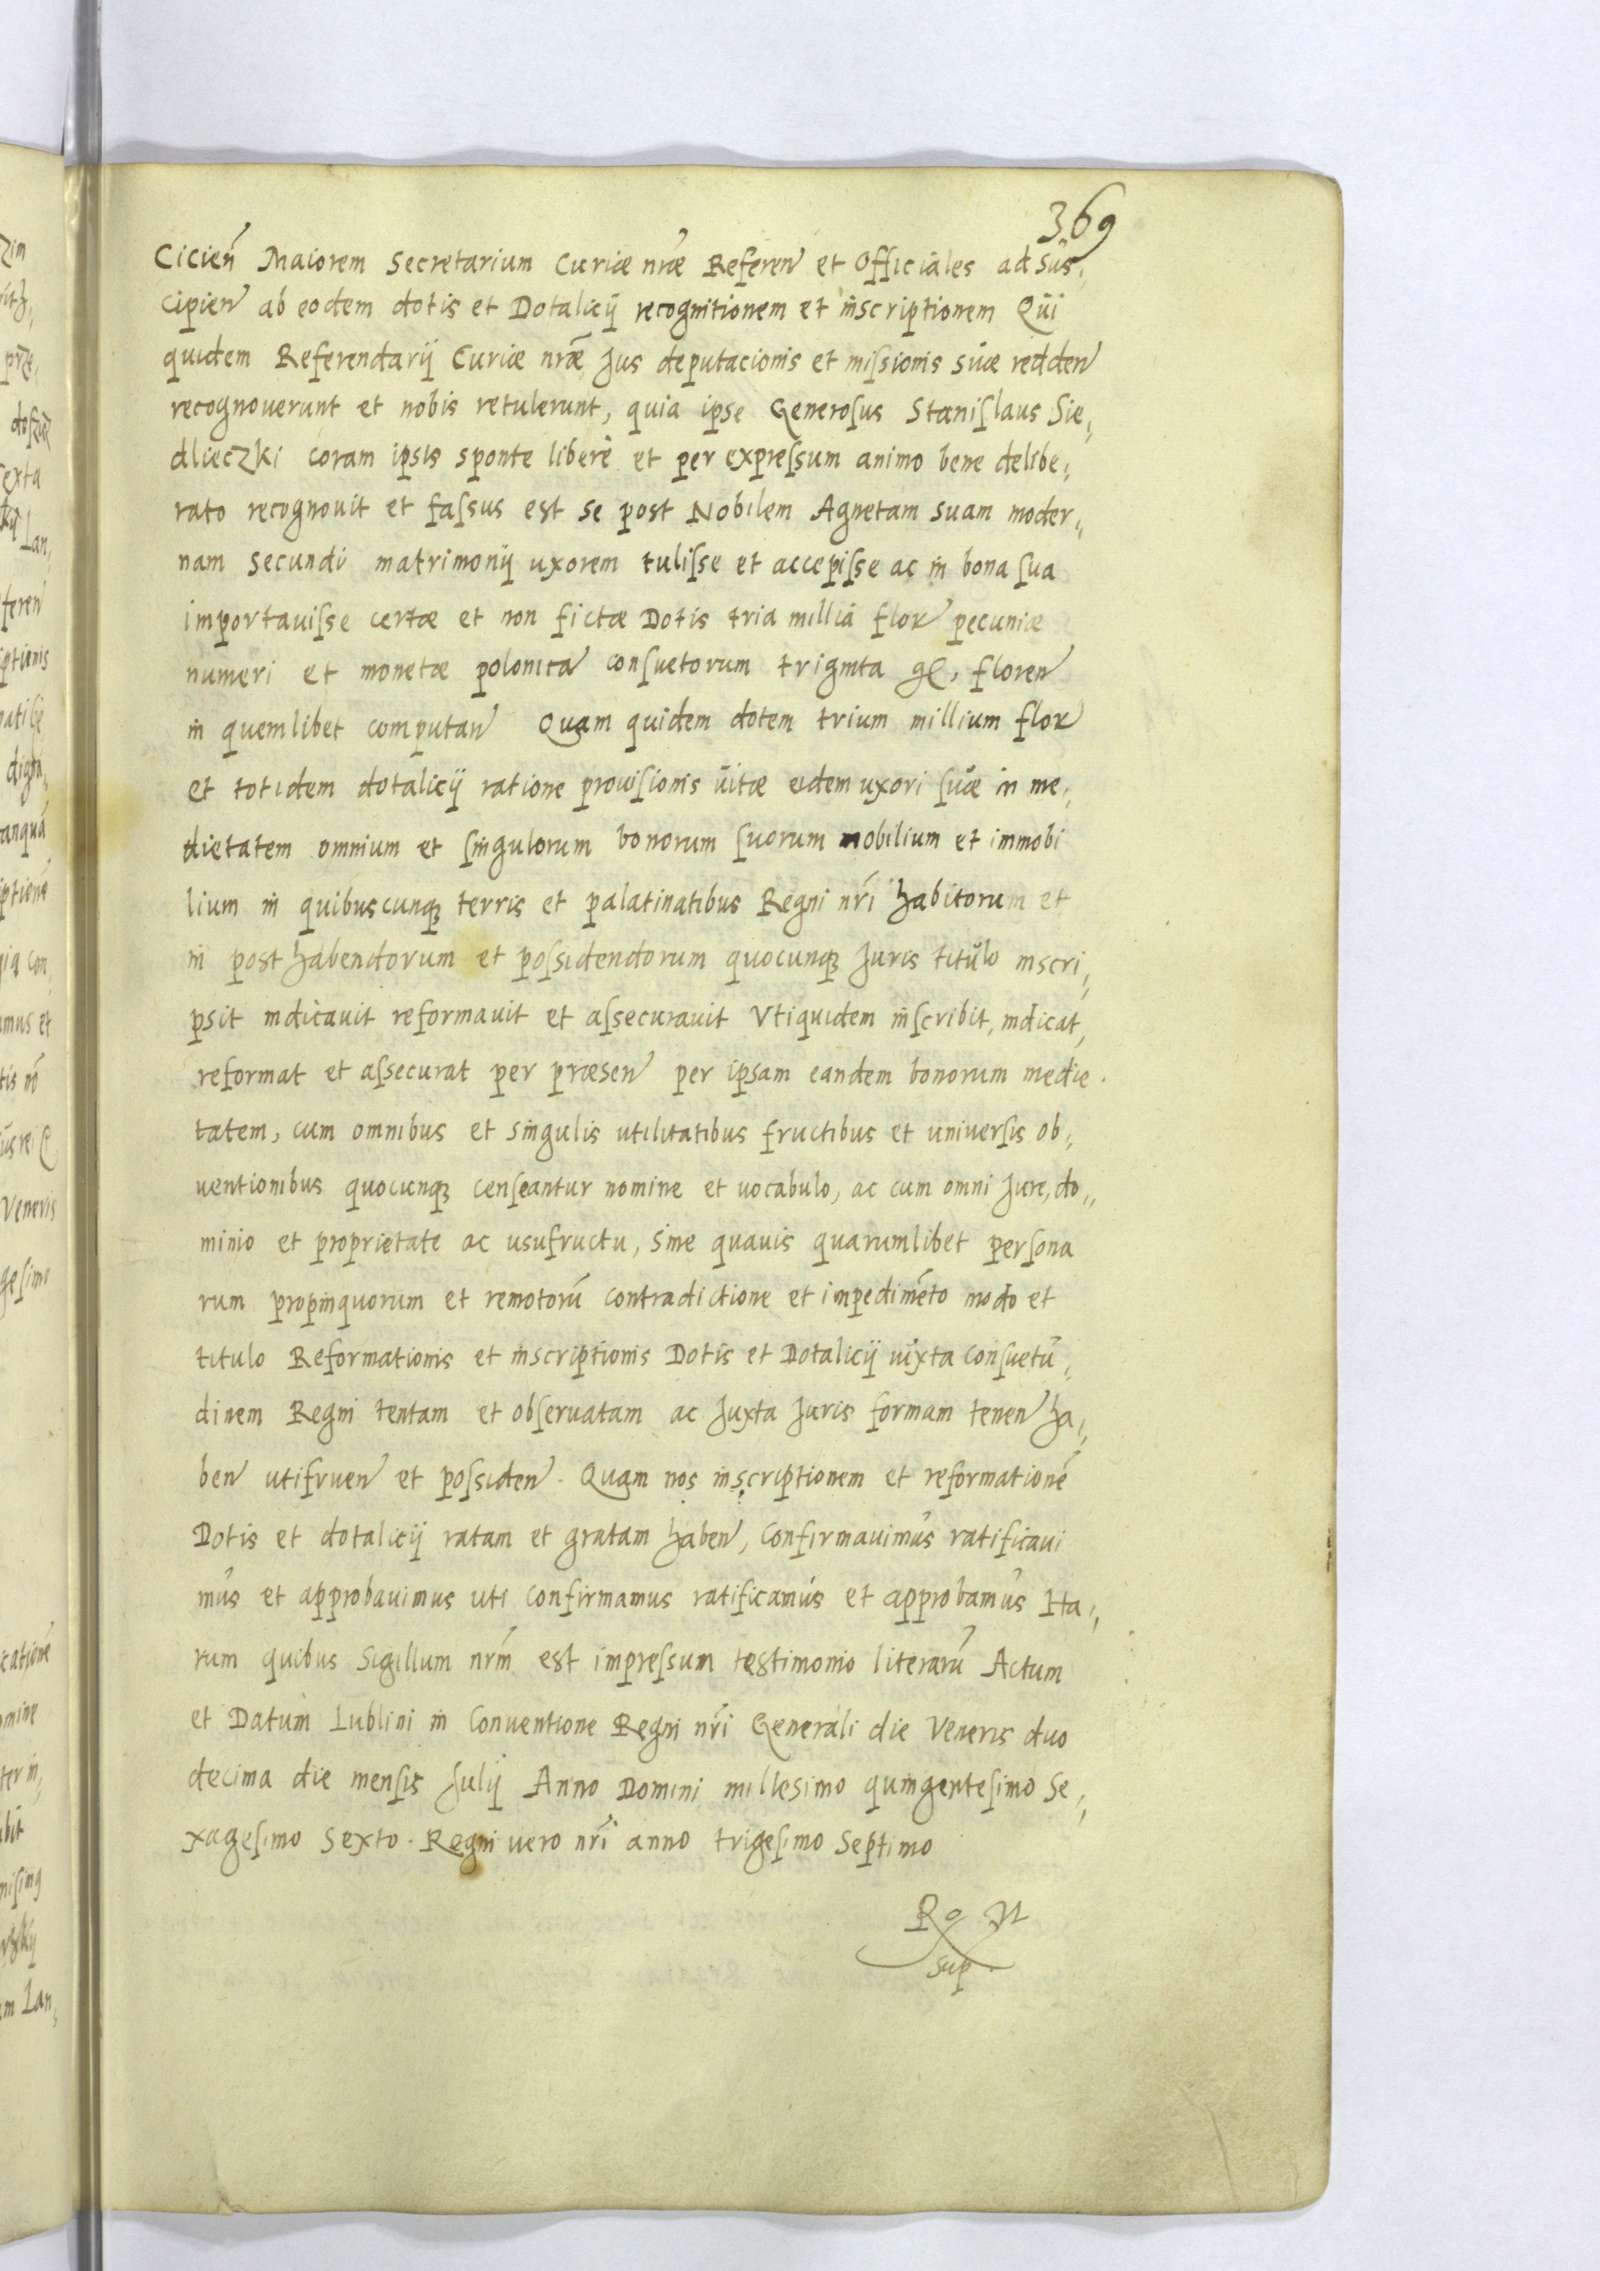 369
Cicień Maiorem Secretarium Curiæ nræ Referen et Officiales ad Sus,,
cipien ab eodem dotis et Dotalicij recognitionem et inscriptionem Qui
quidem Referendarij Curiæ nræ Jus deputacionis et missionis suæ redden
recognouerunt et nobis retulerunt, quia ipse Generosus Stanislaus Sie,,
dlieczki coram ipsis sponte liberè et per expressum animo bene delibe,,
rato recognouit et fassus est se post Nobilem Agnetam suam moder,,
nam secundi matrimonij uxorem tulisse et accepisse ac in bona sua
importauisse certæ et non fictæ Dotis tria millia flor pecuniæ
numeri et monetæ polonica consuetorum triginta gl, floren
in quemlibet computan Quam quidem dotem trium millium flor
et totidem dotalicij ratione prouisionis uitæ eidem uxori suæ in me,,
dietatem omnium et singulorum bonorum suorum mobilium et immobi
lium in quibuscunqꝫ terris et palatinatibus Regni nri habitorum et
in post habendorum et possidendorum quocunqꝫ Juris titulo inscri,,
psit indicauit reformauit et assecurauit Vtiquidem inscribit, indicat,
reformat et assecurat per præsen per ipsam eandem bonorum medie.
tatem, cum omnibus et singulis utilitatibus fructibus et universis ob,,
uentionibus quocunqꝫ censeantur nomine et uocabulo, ac cum omni Jure, do,,
minio et proprietate ac usufructu, sine quauis quarumlibet persona
rum propinquorum et remotorū contradictione et impedimēto modo et
titulo Reformationis et inscriptionis Dotis et Dotalicij iuxta consuetu,,
dinem Regni tentam et obseruatam ac Juxta Juris formam tenen ha,,
ben utifruen et possiden. Quam nos inscriptionem et reformationē
Dotis et dotalicij ratam et gratam haben, confirmauimus ratificaui
mus et approbauimus uti confirmamus ratificamus et approbamus Ha,,
rum quibus Sigillum nrm est impressum testimonio literarū Actum
et Datum Lublini in Conuentione Regni nri Generali die Veneris duo
decima die mensis Julij Anno Domini millesimo quingentesimo Se,,
xagesimo Sexto. Regni uero nri anno trigesimo Septimo
sup